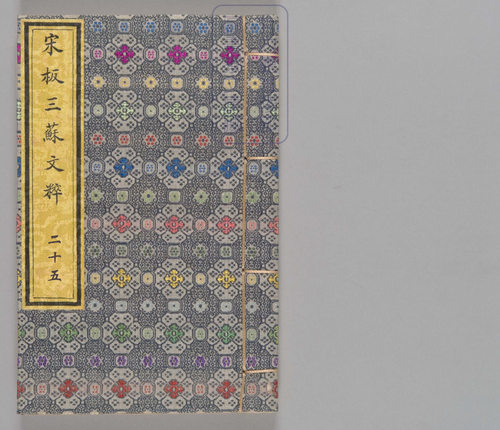 宋板三蘇文粹 二十五